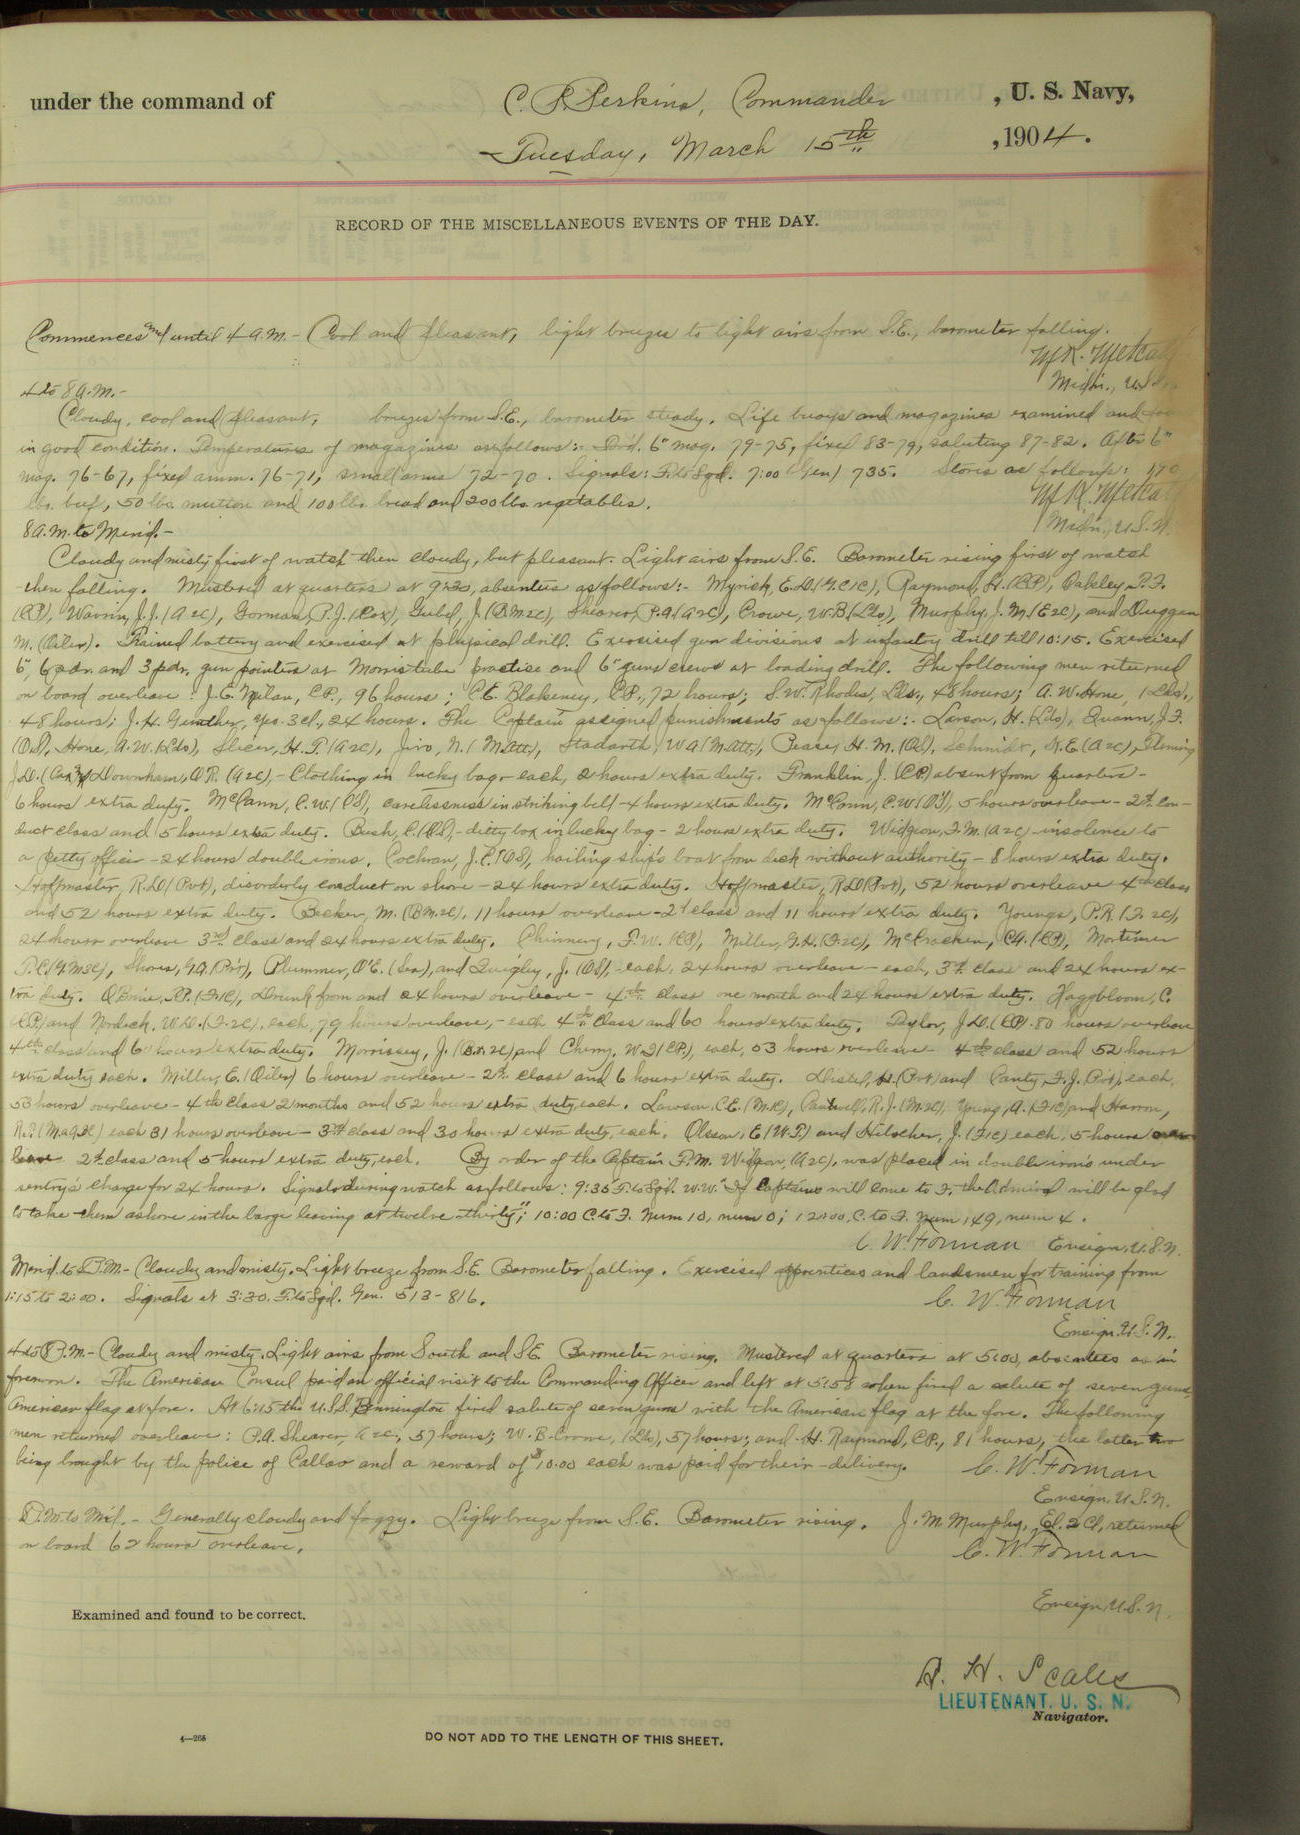 under the command of C. P. Perkins, Commander , U. S. Navy,
Tuesday, March 15th , 1904.
RECORD OF THE MISCELLANEOUS EVENTS OF THE DAY.
Commences and until 4 a.m. - Cool and pleasant, light breezes to light airs from S.E., barometer falling.
M.K. Metcalf
Midn., U.S.N.
4 to 8 A.M. -
Cloudy, cool and pleasant, breezes from S.E., barometer steady. Life buoys and magazines examined and
in good condition. Temperatures of magazines as follows:- Fr'd. 6" mag. 79-75, fixed 83-79, saluting 87-82. After 6"
mag. 76-67, fixed amm. 76-71, small arms 72-70. Signals: F. to Sqd. 7:00 (Gen) 735. Stores as follows: 170
lbs. beef, 50 lbs. mutton and 100 lbs. bread and 200 lbs. vegetables.
M.K. Metcalf
Midn., U.S.N.
8 A.M. to Merid. -
Cloudy and misty first of watch then cloudy, but pleasant. Light airs from S.E. Barometer rising first of watch
then falling. Mustered at quarters at 9:30, absentees as follows:- Myrick, E.D. (G.C.1C), Raymond, H. (CP), Oakley, F.F.
(CP), Warrin, J.J. (A2C), Gorman, P.J. (Cox), Guild, J. (B.M.2C), Shearer, P.A. (A2C), Crowe, W.B. (Lds), Murphy, J.M. (E2C), and Duggan
M. (Oiler). Trained battery and exercised at physical drill. Exercised gun divisions at infantry drill till 10:15. Exercised
6", 6 pdr. and 3 pdr. gun pointers at Morris tube practise and 6" guns crews at loading drill. The following men returned
on board overleave: J.G. Milan, C.P., 96 hours; C.E. Blakeney, C.P., 72 hours; S.W. Rhodes, Lds., 48 hours; A.W. Hone, (Lds),
48 hours; J.H. Gunther, Yeo. 3cl., 24 hours. The Captain assigned punishments as follows:- Larson, H. (Lds), Quann, J.F.
(OS), Hone, A.W. (Lds), Slicer, H.P. (A2C), Jiro, N. (M.Att), Stadarth, W.A. (M.Att), Peasey, H.M. (OS), Schmidt, K.E. (A2C), Fleming
J.D. (Cox) & Downham, O.R. (A2C), - Clothing in lucky bag - each, 2 hours extra duty. Franklin, J. (CP) absent from quarters -
6 hours extra duty. McCann, C.W. (OS), carelessness in striking bell - 4 hours extra duty. McCann, C.W. (OS), 5 hours overleave - 2d. con-
duct class and 5 hours extra duty. Bush, C. (OS), - ditty box in lucky bag - 2 hours extra duty. Widgeon, F.M. (A2C) - insolence to
a petty officer - 24 hours double irons. Cochran, J.P. (OS), hailing ship's boat from deck without authority - 8 hours extra duty.
Hoffmaster, R.D. (Pvt), disorderly conduct on shore - 24 hours extra duty. Hoffmaster, R.D. (Pvt), 52 hours overleave 4th class
and 52 hours extra duty. Becker, M. (B.M.2C), 11 hours overleave - 2d class and 11 hours extra duty. Youngs, P.R. (F.2C),
24 hours overleave 3rd. class and 24 hours extra duty. Chinnery, F.W. (CP), Miller, G.H. (F2C), McCracken, C.A. (CP), Mortimer
P.C. (G.M.3C), Shores, G.A. (Pvt), Plummer, O.E. (Sea), and Quigley, J. (OS), - each, 24 hours overleave - each, 3d. class and 24 hours ex-
tra duty. O'Brine, P. (F.1C), Drunk from and 24 hours overleave - 4th class one month and 24 hours extra duty. Haggbloom, C.
(CP) and Nordick, W.D. (F.2C), each, 79 hours overleave, - each 4th class and 60 hours extra duty. Dyler, J.D. (CP) 80 hours overleave
4th class and 60 hours extra duty. Morrissey, J. (B.M.2C) and Cherry, W.J. (CP), each, 53 hours overleave - 4th class and 52 hours
extra duty each. Miller, E. (Oiler) 6 hours overleave - 2d. class and 6 hours extra duty. Distel, H. (Pvt) and Canty, F.J. (Pvt), each,
53 hours overleave - 4th class 2 months and 52 hours extra duty each. Lawson, C.E. (M.1C), Cantwell, R.J. (M.2C), Young, A. (F1C) and Harron,
R.P. (M.a.a.3C) each 31 hours overleave - 3rd class and 30 hours extra duty, each. Olsson, E. (W.T.) and Hilscher, J. (F1C) each, 5 hours over
leave 2d. class and 5 hours extra duty, each. By order of the Captain F.M. Widgeon, (A2C), was placed in double irons under
sentry's charge for 24 hours. Signals during watch as follows: 9:35 F. to Sqd. W.W. "If Captains will come to F. the Admiral will be glad
to take them ashore in the barge leaving at twelve-thirty"; 10:00 C. to F. Num 10, num 0; 12:00, C. to F. num 149, num 4.
C. W. Forman Ensign, U.S.N.
Merid. to 4 P.M. - Cloudy and misty. Light breeze from S.E. Barometer falling. Exercised apprentices and landsmen for training from
1:15 to 2:00. Signals at 3:30. F. to Sqd. Gen. 513-816.
C. W. Forman
Ensign U.S.N.
4 to 8 P.M. - Cloudy and misty. Light airs from South and S.E. Barometer rising. Mustered at quarters at 5:00, absentees as in
forenoon. The American Consul paid an official visit to the Commanding Officer and left at 5:58 when fired a salute of seven guns,
American flag at fore. At 6:15 the U.S.S. Bennington fired salute of seven guns with the American flag at the fore. The following
men returned overleave: P.A. Shearer, A2C, 57 hours; W.B. Crowe, (Lds), 57 hours; and H. Raymond, C.P., 81 hours, the latter two
being brought by the police of Callao and a reward of $10.00 each was paid for their delivery.
C. W. Forman
Ensign, U.S.N.
8 P.M. to Mid. - Generally cloudy and foggy. Light breeze from S.E. Barometer rising. J. M. Murphy, El. 2 Cl, returned
on board 62 hours overleave.
C. W. Forman
Ensign U.S.N.
Examined and found to be correct.
A. H. Scales
LIEUTENANT, U. S. N.
Navigator.
4—265
DO NOT ADD TO THE LENGTH OF THIS SHEET.